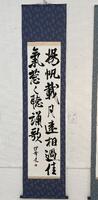 揚帆載月遠相過佳
氣葱々聽誦歌